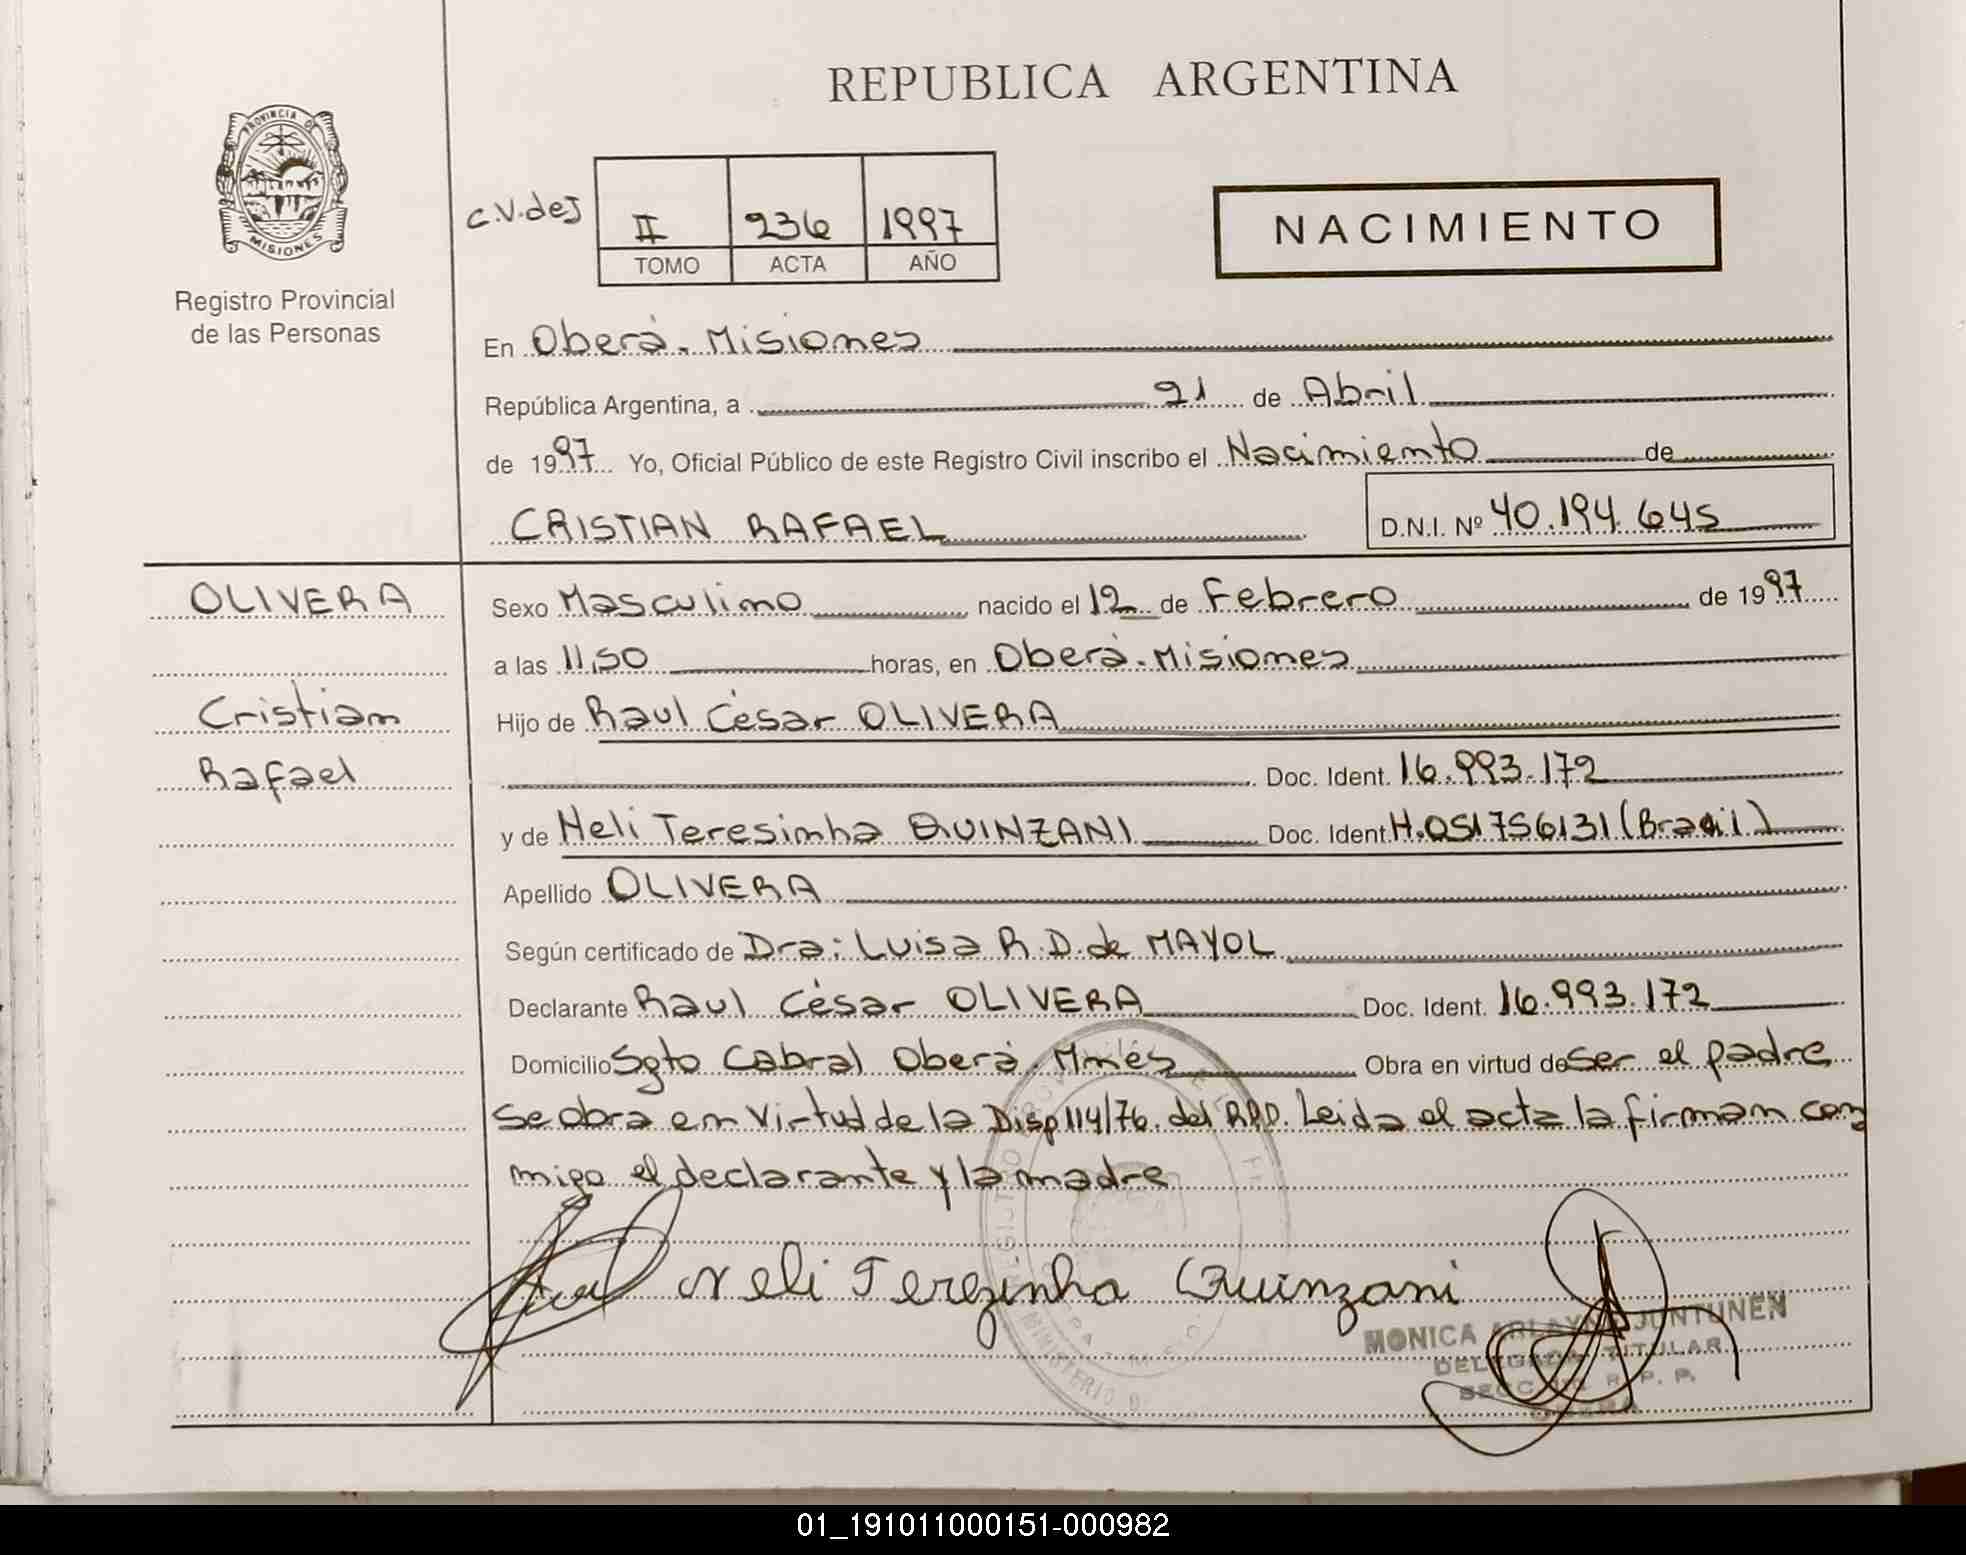 REPUBLICA ARGENTINA
PROVINCIA DE
MISIONES
Registro Provincial
de las Personas
C.V.deJ
II 236 1997
TOMO ACTA AÑO
NACIMIENTO
En Oberà. Misiones
República Argentina, a 21 de Abril
de 1997 Yo, Oficial Público de este Registro Civil inscribo el Nacimiento de
CRISTIAN RAFAEL D.N.I. Nº 40.194.645
OLIVERA Sexo Masculino nacido el 12 de Febrero de 1997
a las 11,50 horas, en Oberà. Misiones
Cristian Hijo de Raul César OLIVERA
Rafael Doc. Ident. 16.993.172
y de Neli Teresinha QUINZANI Doc. Ident. H.051756131 (Brasil)
Apellido OLIVERA
Según certificado de Dra: Luisa R.D. de MAYOL
Declarante Raul César OLIVERA Doc. Ident. 16.993.172
Domicilio Sgto Cabral Oberà. Mnes Obra en virtud de ser el padre
Se obra en virtud de la Disp 114/76. del RPP. Leida el acta la firman con
migo el declarante y la madre
Neli Terezinha Quinzani
MONICA ARLAYNE JUNTUNEN
DELEGADA TITULAR
R. P. P.
OBERA
01_191011000151-000982